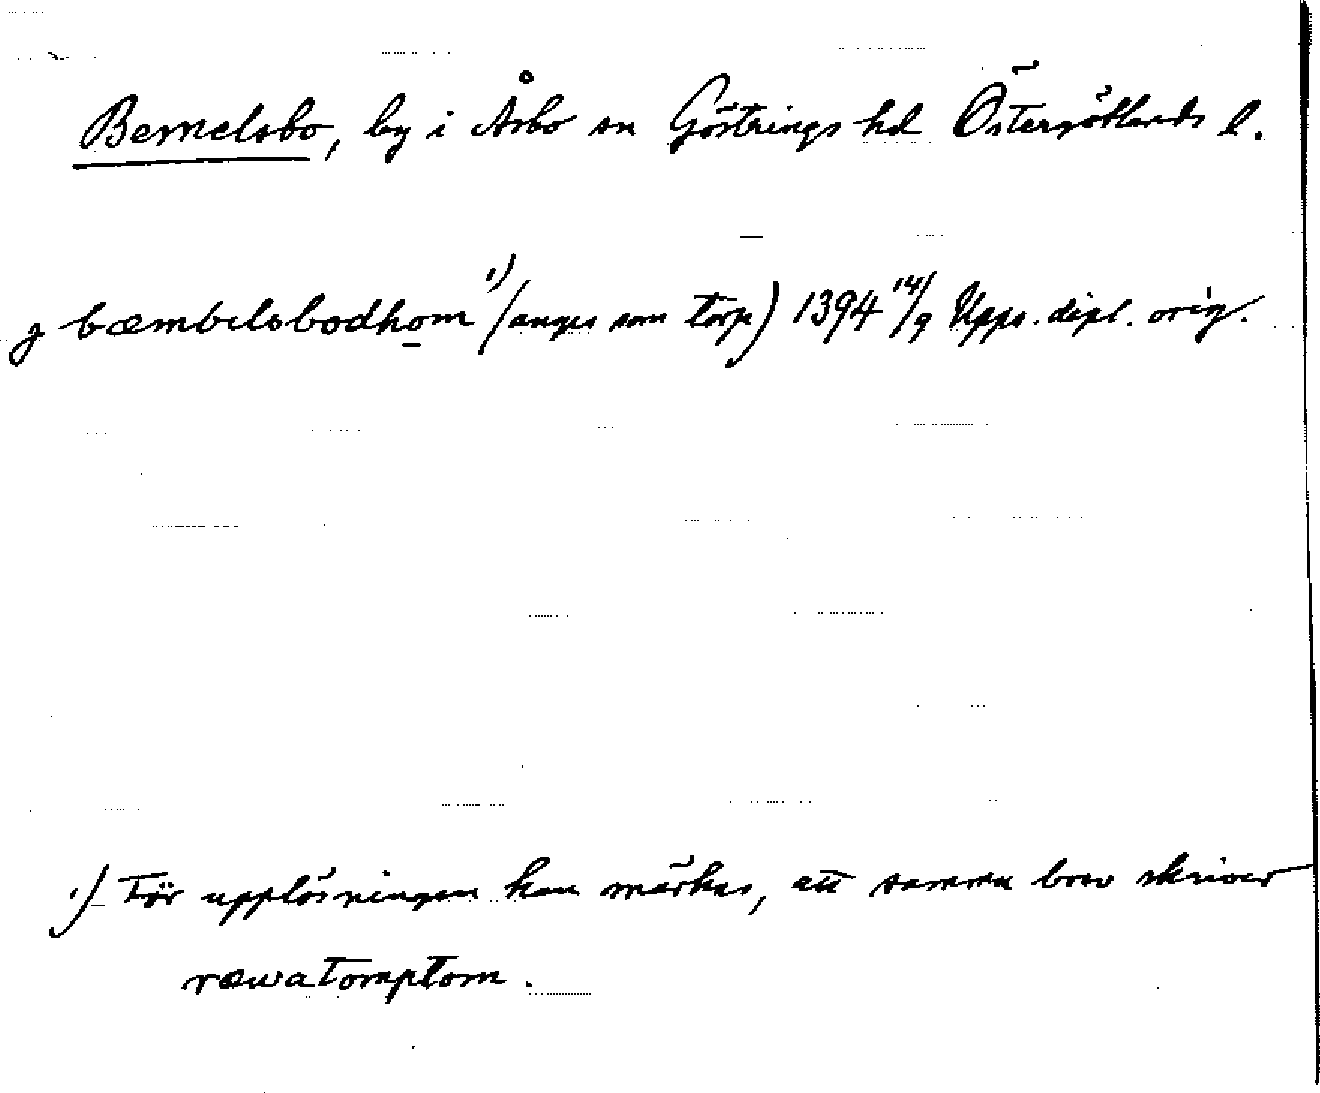 Bemelsbo, by i Åsbo sn Göstrings hd Östergötlands l.
j bæmbelsbodhom ¹⁾ (anges som torp) 1394 14/9 Upps. dipl. orig.
¹⁾ För upplösningen kan märkas, att samma brev skriver
ræwatomptom.